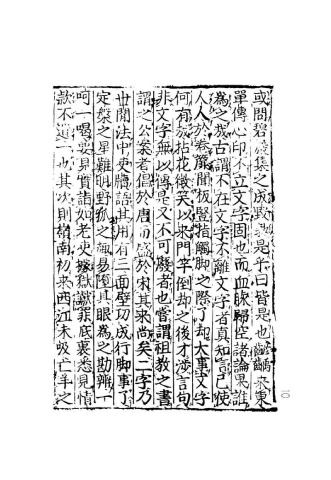 或問碧巖集之成毀孰是乎曰皆是也䶩䶩來東
單傳心印不立文字固也而血脉歸空諸論果誰
為之哉古謂不在文字不離文字者真知言已使
人人於卷簾聞板竪指觸脚之際了却大事文字
何有哉拈花微笑以來門竿倒却之後才涉言句
非文字無以傳是又不可廢者也嘗謂祖教之書
謂之公案者倡於唐而盛於宋其來尚矣二字乃
世間法中吏牘語其用有三面壁功成行脚事了
定槃之星難明野狐之趣易墮具眼為之勘辨一
呵一喝要見實詣如老吏據獄讞罪底裏悉見情
款不遺一也其次則嶺南初來西江未吸亡羊之
10